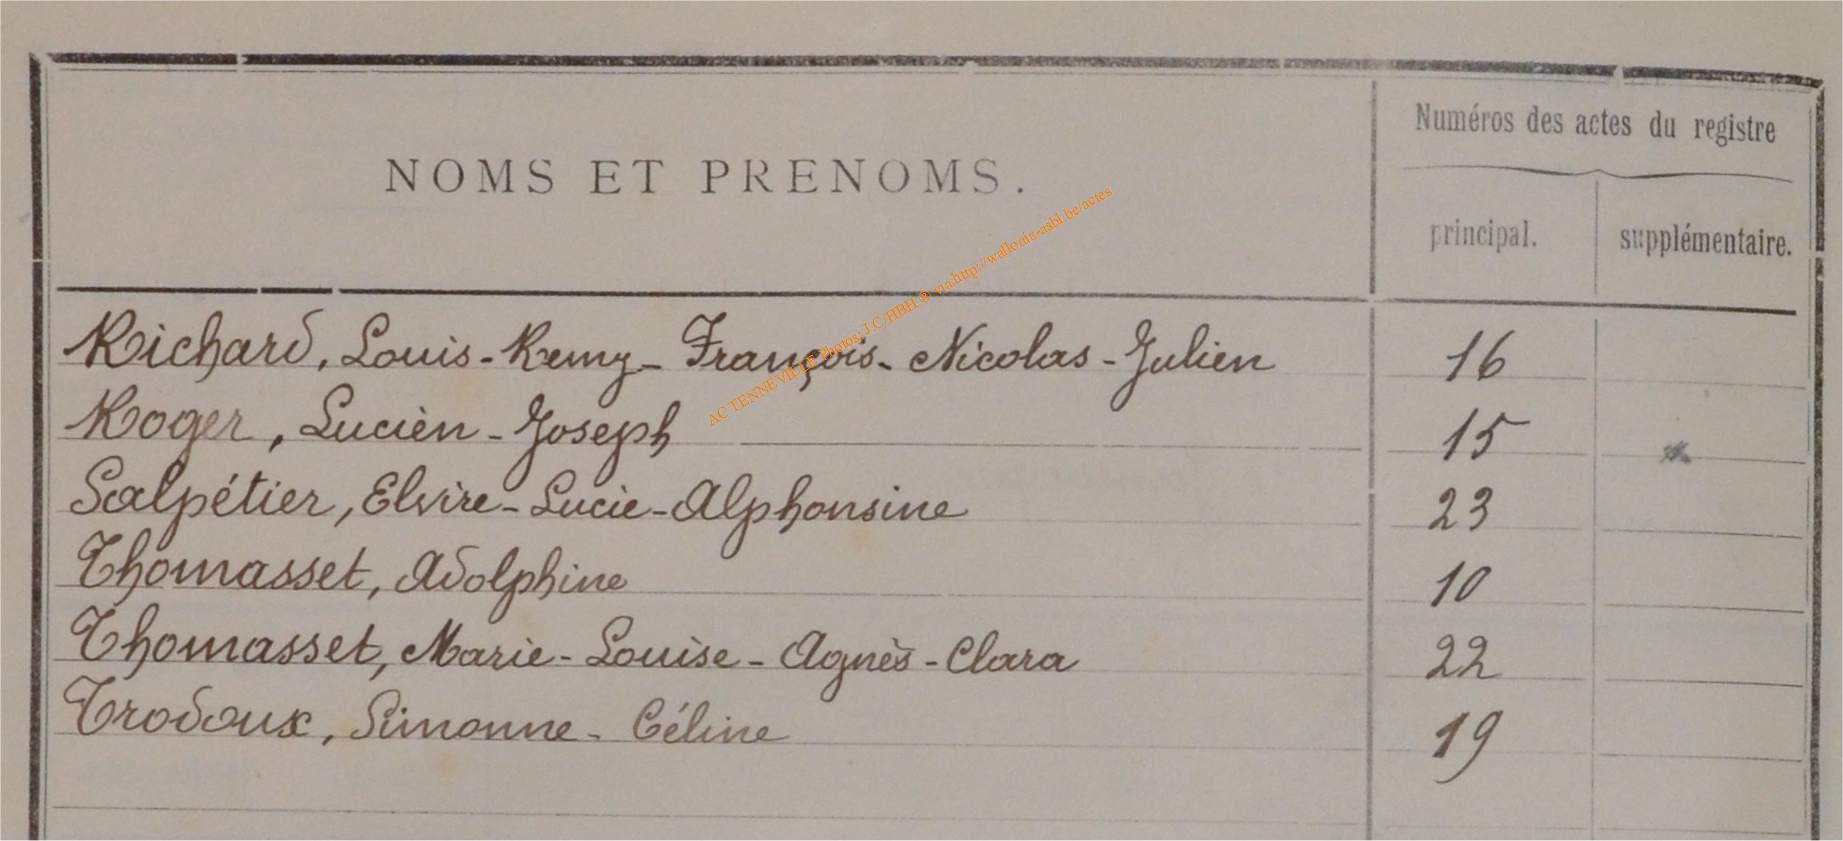 Numéros des actes du registre
NOMS ET PRENOMS.
principal. supplémentaire.
Richard, Louis-Remy-François-Nicolas-Julien 16
Roger, Lucien-Joseph 15
Salpétier, Elvire-Lucie-Alphonsine 23
Thomasset, Adolphine 10
Thomasset, Marie-Louise-Agnès-Clara 22
Trodoux, Simonne-Céline 19
AC TENNEVILLE Photos: J C/HBH @ via http://wallonia-asbl.be/actes